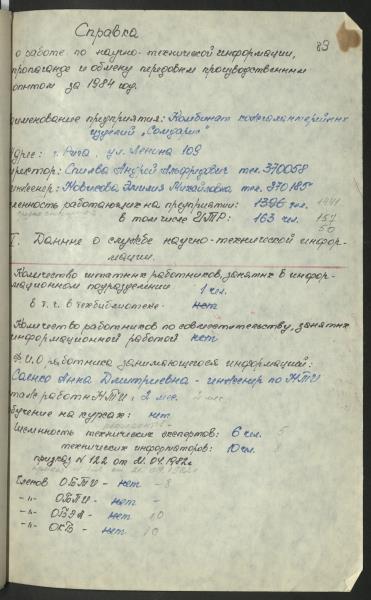 Справка
89
о работе по научно-технической информации,
пропаганде и обмену передовым производственным
опытом за 1984 год.
аименование предприятия: Комбинат кожгалантерейных
изделий „Сомдарис"
дрес: г. Рига, ул. Ленина 109
иректор: Спилва Андрей Альфредович тел. 370058
инженер: Новикова Эмилия Михайловна тел. 370185
ленность работающих на предприятии: 1396 чел. 1441
в том числе ИТР: 163 чел. 157
50
I. Данные о службе научно-технической инфор-
мации.
Количество штатных работников, занятых в инфор-
мационном подразделении 1 чел.
в т. ч. в техбиблиотеке - нет
Количество работников по совместительству, занятых
информационной работой нет
Ф.И.О работника занимающегося информацией:
Саенко Анна Дмитриевна - инженер по НТИ
таж работы НТИ: 2 мес. 2 мес.
бучение на курсах: нет
исленность технических экспертов: 6 чел. 5
технических информаторов: 10 чел. 8
приказ N 122 от 21.04.1982г.
Членов ОБТИ - нет - 8
-"- ОБПИ - нет -
-"- ОБЭА - нет 10
-"- ОКБ - нет 10